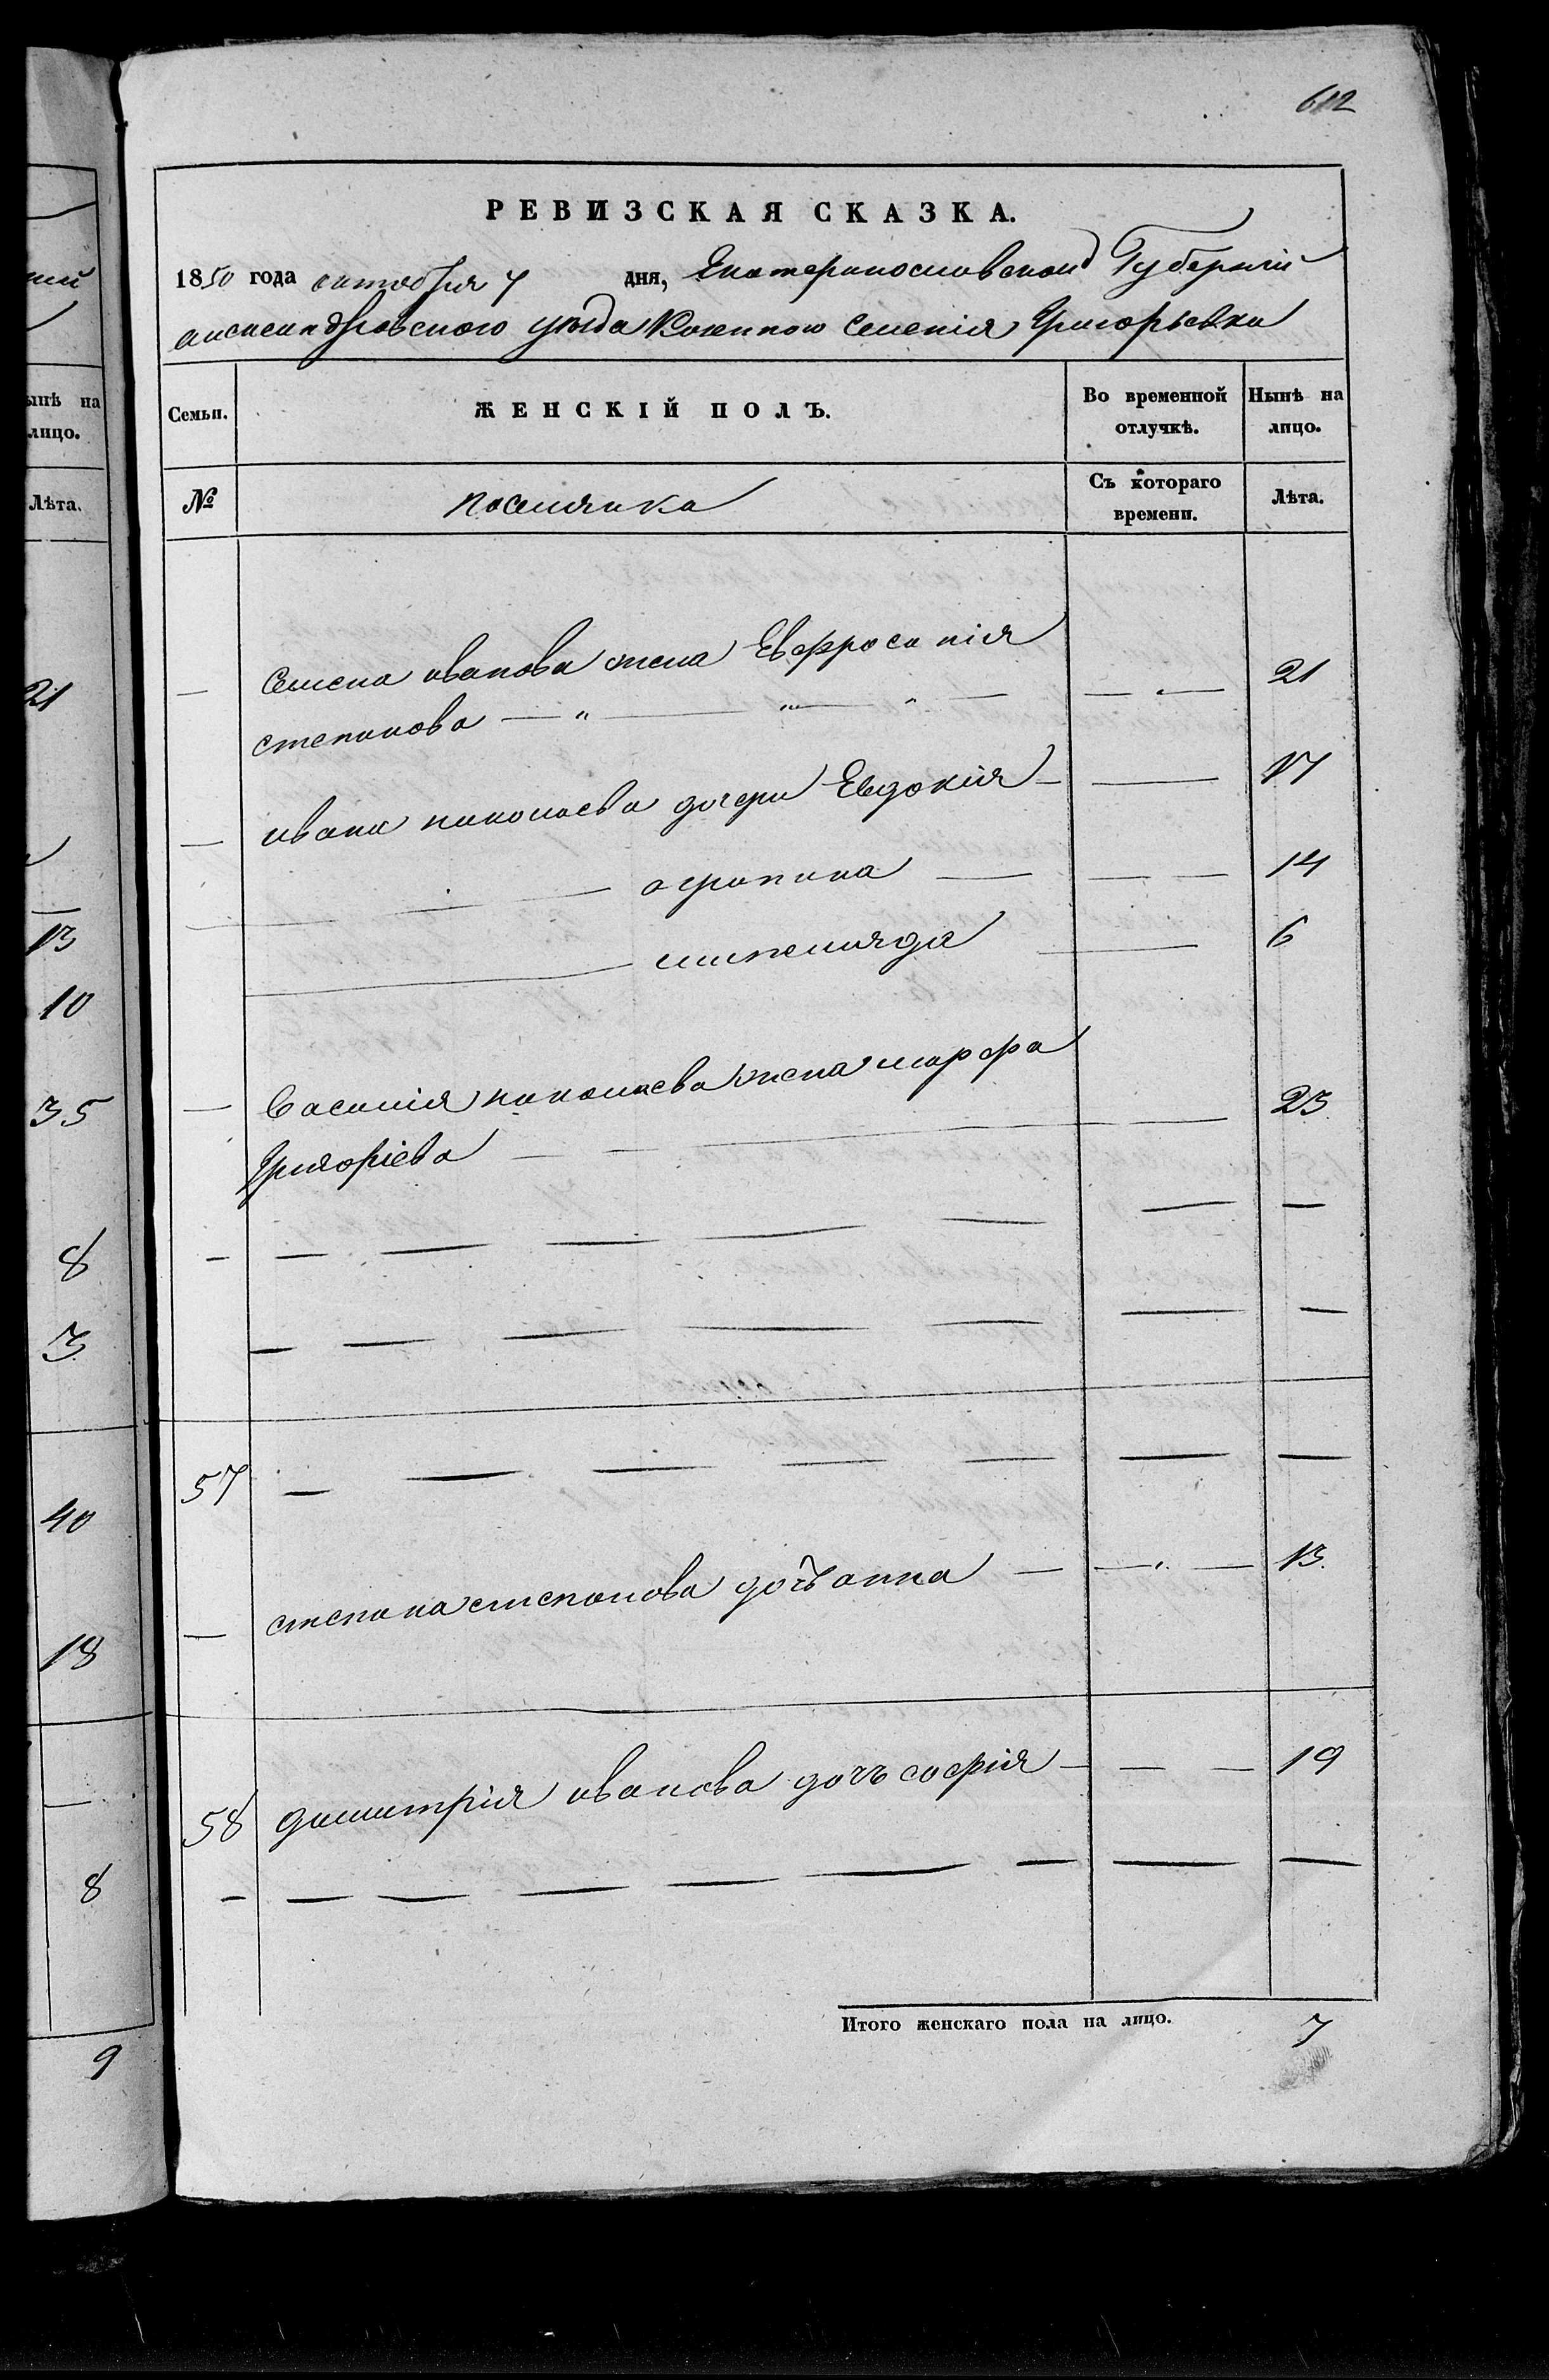 612
РЕВИЗСКАЯ СКАЗКА.
1850 года октября 7 дня, Екатеринославской Губернии
александровского уезда Военного Селенія Григорьевки
Семьи. ЖЕНСКІЙ ПОЛЪ. Во временной отлучкѣ. Нынѣ на лицо.
№ поселянка Съ котораго времени. Лѣта.
— Семена иванова жена Евфросинія
степанова — „ — „ — „ — — „ — 21
— ивана николаева дочери Евдокія — — 17
— агрипина — — — 14
— минкилида — 6
— василія николаева жена марфа
Григоріева — — — — 23
— — — — — — — —
— — — — — — —
57 — — — — — — —
— степана степанова дочь анна — — „ — 13
58 димитрія иванова дочь софія — — — 19
— — — — — — — — —
Итого женскаго пола на лицо. 7
ынѣ на
лицо.
Лѣта.
21
13
10
35
8
3
40
18
8
9